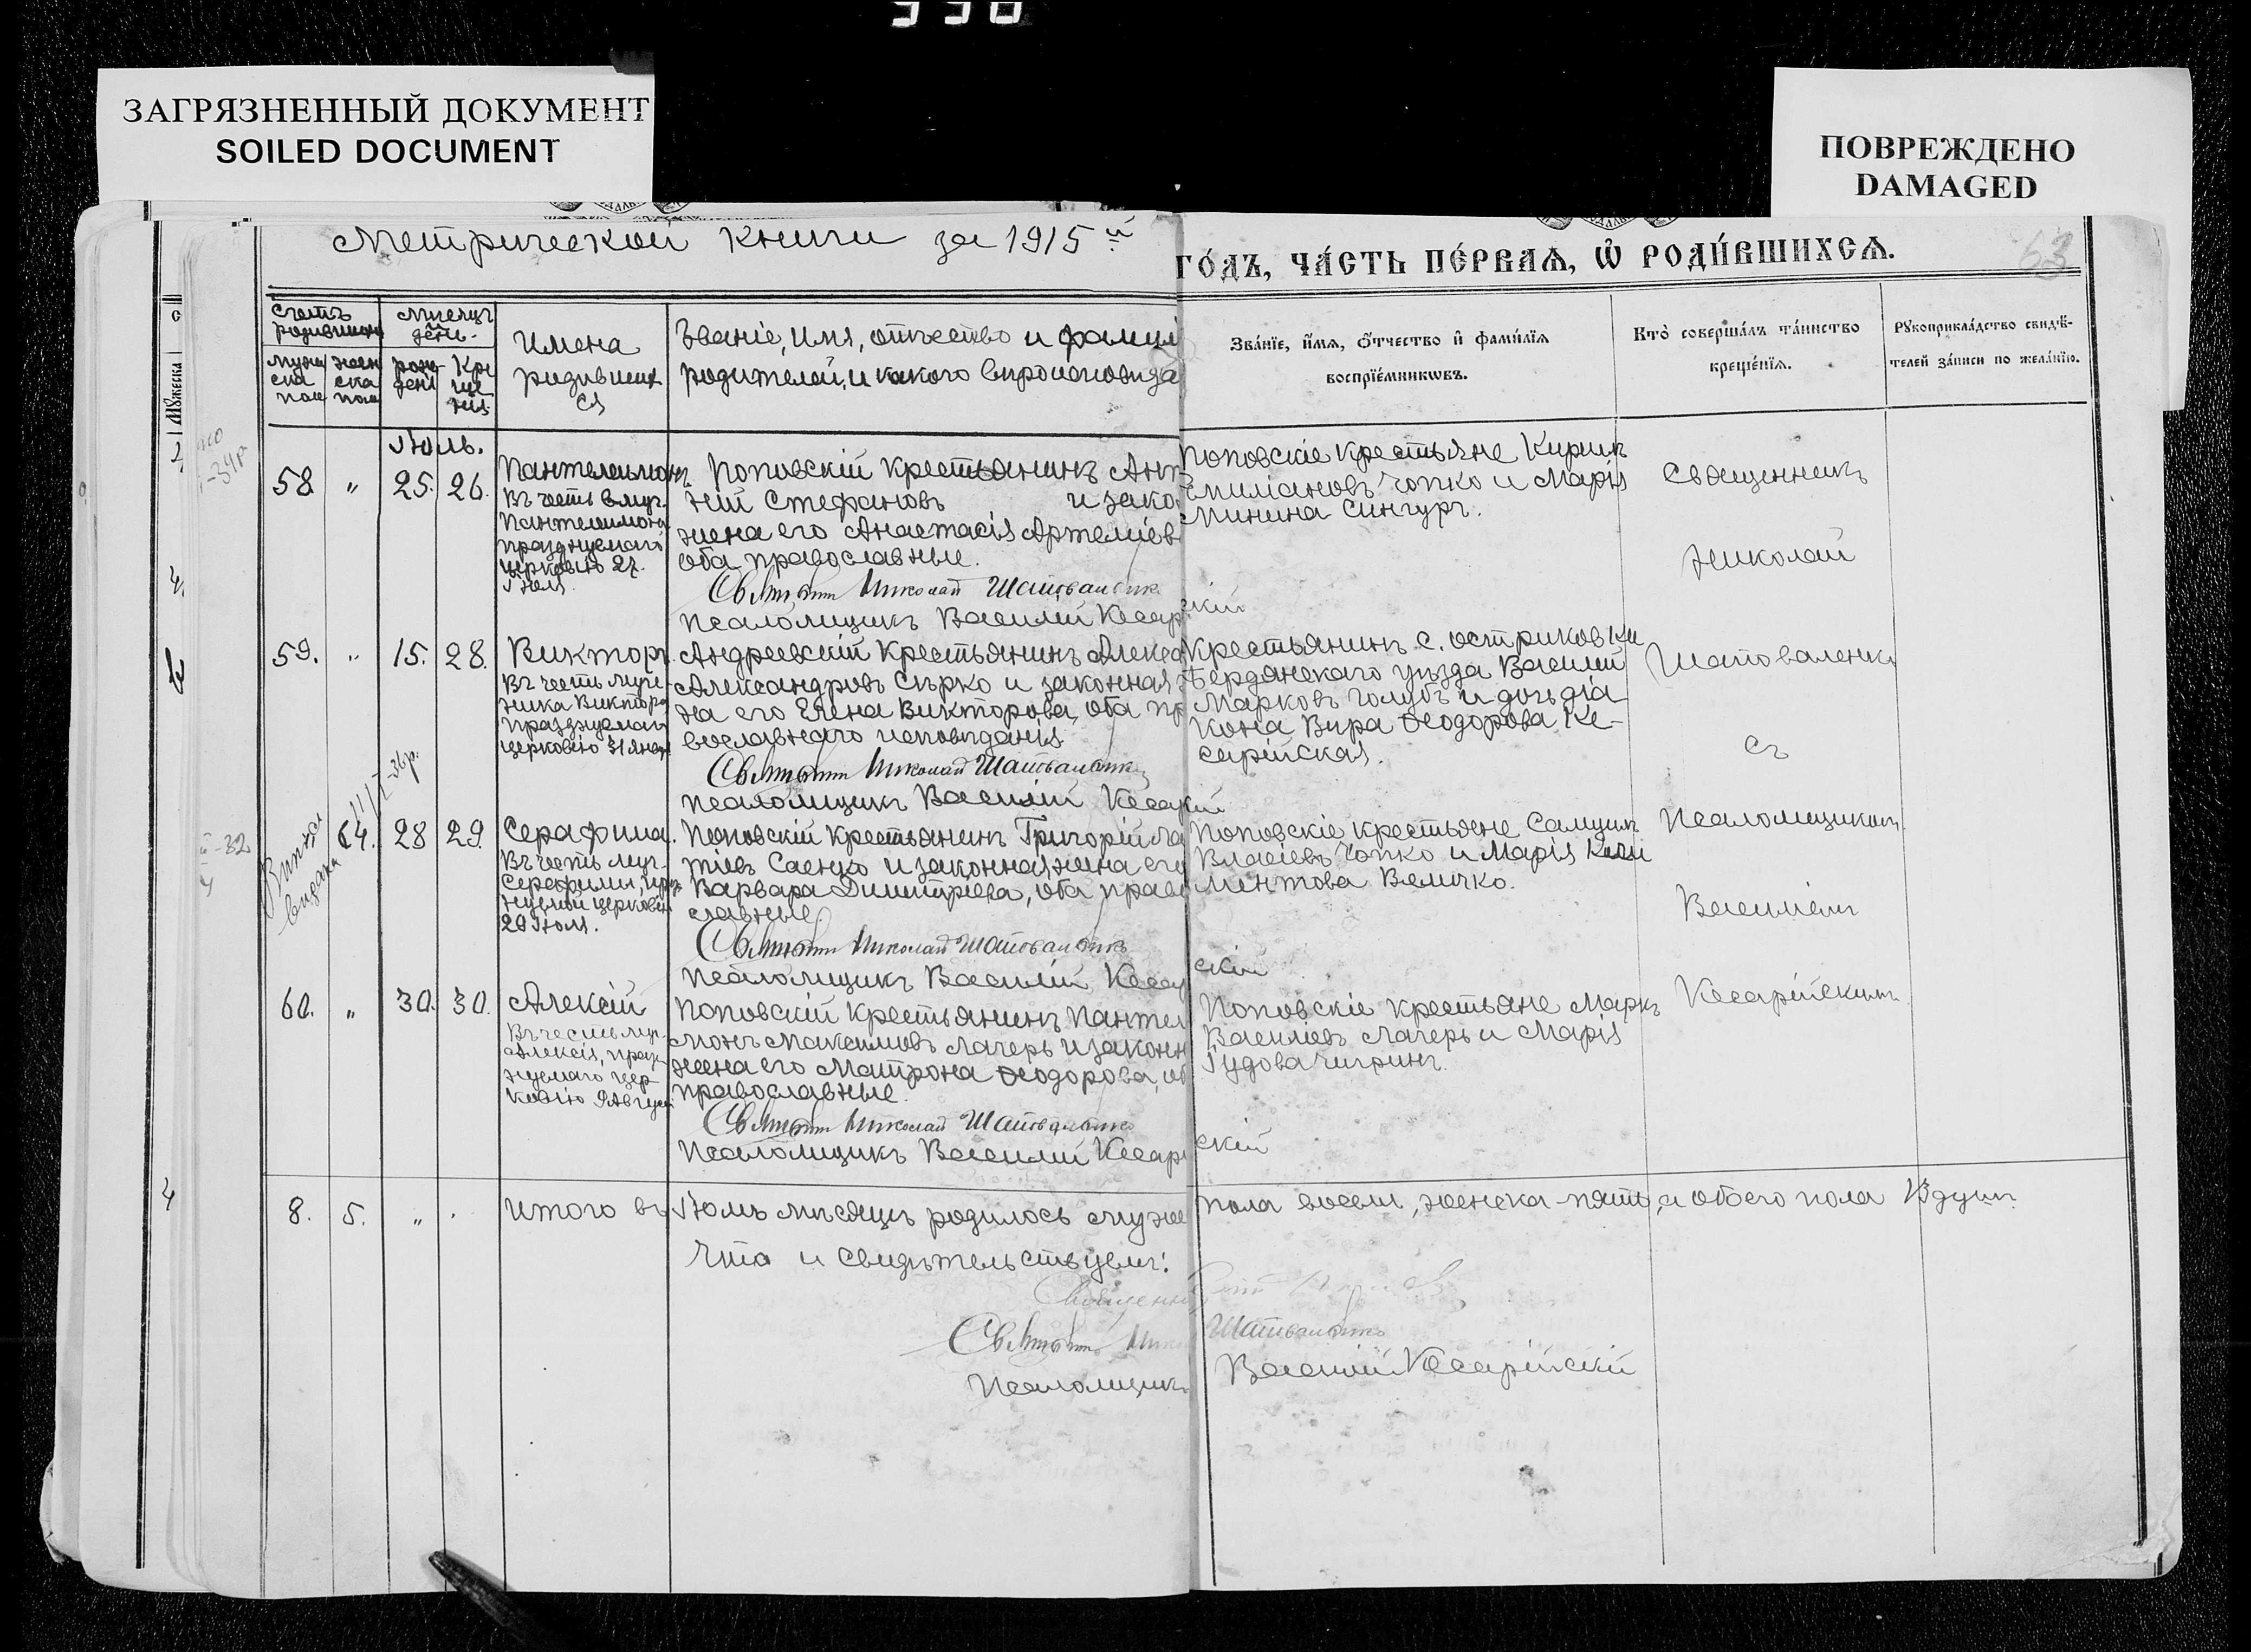 330
ЗАГРЯЗНЕННЫЙ ДОКУМЕНТ
SOILED DOCUMENT
ПОВРЕЖДЕНО
DAMAGED
Метрической книги за 1915й
го́дъ, ча́сть пе́рвая, ѡ роди́вшихся.
63
Счетъ родившихся
Мѣсяцъ и день.
Имена родившихся
Званіе, Имя, отчество и фамил
родителей, и какого вѣроисповѣда
Зва́нїе, и́мя, о́тчество и фами́лїя
воспрїе́мникѡвъ.
Кто̀ соверша́лъ та́инство
креще́нїя.
Рꙋкоприкла́дство свидѣ́-
телей за́писи по жела́нїю.
Муже
ска
пол
жен
ска
пола
рож
ден
Кре
ще
нія
Іюль.
58. " 25. 26.
Пантелеимонъ
Въ честь влмч.
Пантелеимона
празднуемаго
церковію 27.
Іюля.
Поповскій крестьянинъ Ант
ній Стефановъ и зако
жена его Анастасія Артеміев
оба православные.
Священник Николай Шаповаленко
Псаломщикъ Василій Кесарійскій
Поповскіе крестьяне Кирилъ
Емиліановъ Чопко и Марія
Минина Сингуръ.
Священникъ
Николай
Шаповаленко
съ
Псаломщикомъ
Василіемъ
Кесарійскимъ.
59. " 15. 28.
Викторъ.
Въ честь муче-
ника Виктора
празднуемаго
церковію 31 Янв
Андреевскій крестьянинъ Алекса
Александровъ Сѣрко и законная
на его Елена Викторова, оба пр
вославнаго исповѣданія
Священник Николай Шаповаленко
Псаломщикъ Василій Кесарскій
Крестьянинъ с. Остриковки
Бердянскаго уѣзда Василій
Марковъ Голубъ и дочь діа
кона Вѣра Ѳеодорова Ке-
сарійская.
64. 28 29.
Серафима.
Въ честь муч.
Серафимы, праз
нуемой церковію
29 Іюля.
Поповскій крестьянинъ Григорій
тіевъ Саенко и законная жена его
Варвара Димитріева, оба право
славные
Священник Николай Шаповаленко
Псаломщикъ Василій Кесарскій
Поповскіе крестьяне Самуилъ
Власіевъ Чопко и Марія Кли
ментова Величко.
60. " 30. 30.
Алексій
Въ честь муч.
Алексія, праз
нуемаго цер
ковію 9 Август
Поповскій крестьянинъ Пантел
монъ Максимовъ Лагерь и законн
жена его Матрона Ѳеодорова, об
православные.
Священник Николай Шаповаленко
Псаломщикъ Василій Кесарскій
Поповскіе крестьяне Маркъ
Василіевъ Лагерь и Марія
Гудова Чигринъ.
8. 5. " "
Итого въ Іюлѣ мѣсяцѣ родилось муже пола восемь, женска - пять, а обоего пола 13 душъ.
Что и свидѣтельствуемъ:
Священник Ник Шаповаленко
Псаломщикъ Василій Кесарійскій